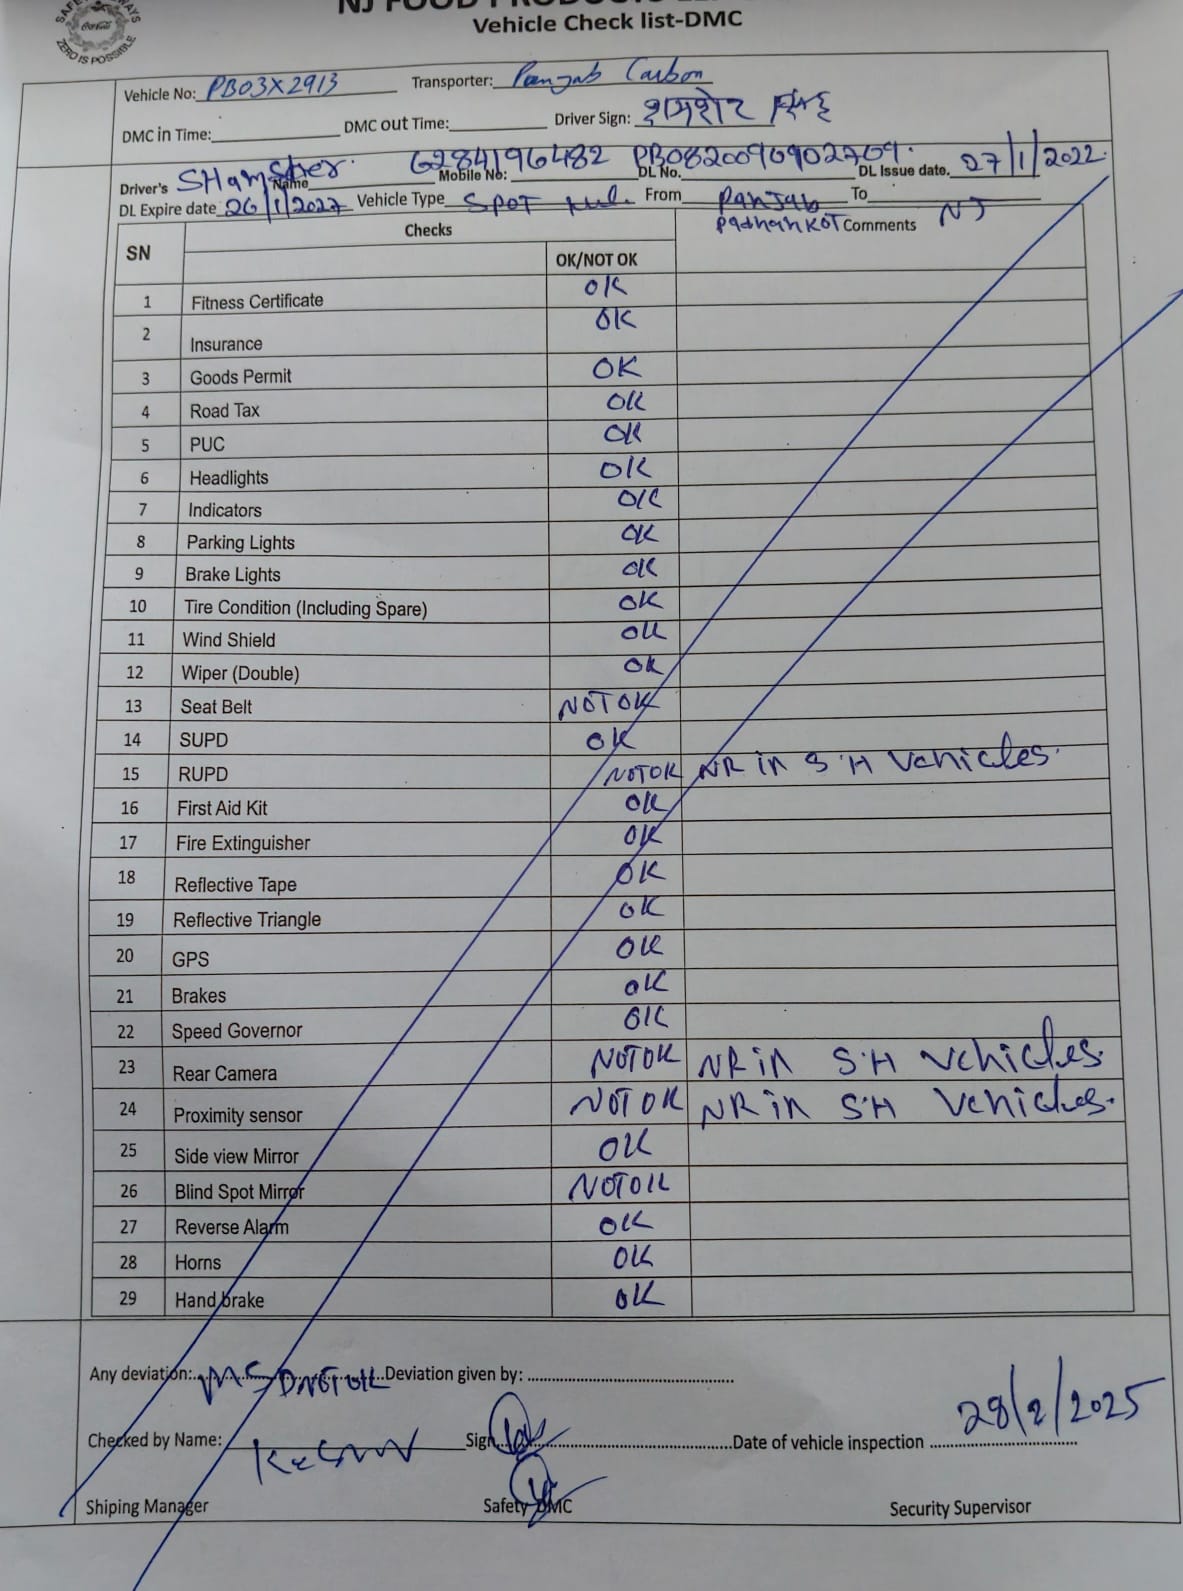 Coca-Cola
ZERO IS POSSIBLE
NJ FOOD PRODUCTS
Vehicle Check list-DMC
Vehicle No: PB03X2913 Transporter: Panjab Carbon
DMC in Time: DMC out Time: Driver Sign: शमशेर सिंह
Driver's Name SHamsher. Mobile No: 6284196482 DL No. DL Issue date. 27/1/2022.
DL Expire date 26/1/2027 Vehicle Type SPOT From Panjab To NJ
PathanKOT
SN Checks OK/NOT OK Comments
1 Fitness Certificate OK
2 Insurance OK
3 Goods Permit OK
4 Road Tax OK
5 PUC OK
6 Headlights OK
7 Indicators OK
8 Parking Lights OK
9 Brake Lights OK
10 Tire Condition (Including Spare) OK
11 Wind Shield OK
12 Wiper (Double) OK
13 Seat Belt NOT OK
14 SUPD OK
15 RUPD NOT OK NR in S.H Vehicles.
16 First Aid Kit OK
17 Fire Extinguisher OK
18 Reflective Tape OK
19 Reflective Triangle OK
20 GPS OK
21 Brakes OK
22 Speed Governor OK
23 Rear Camera NOT OK NR in S.H Vehicles.
24 Proximity sensor NOT OK NR in S.H Vehicles.
25 Side view Mirror OK
26 Blind Spot Mirror NOT OK
27 Reverse Alarm OK
28 Horns OK
29 Hand brake OK
Any deviation: NOT OK Deviation given by:
Checked by Name: Sign Date of vehicle inspection 28/2/2025
Shiping Manager Safety DMC Security Supervisor